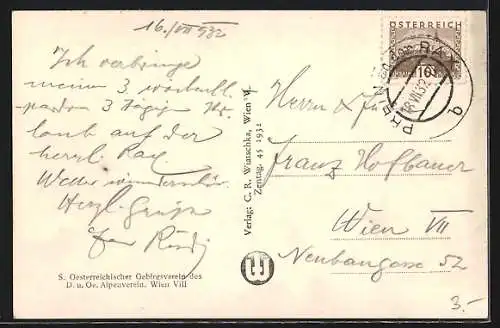 16./VII 932
Ich verbringe
meinen 3
3 tägigen Ur-
laub auf der
herzl. Rax.
Wetter wunderschön.
Herzl. Grüße
S. Oesterreichischer Gebirgsverein des
D. u. Oe. Alpenverein. Wien VIII
Verlag: C. R. Wiatschka, Wien V.
Zentag. 45 1932
ÖSTERREICH
10
18.VII.32
Herrn &
Franz Hofbauer
Wien VII
Neubaugasse 52
3.-